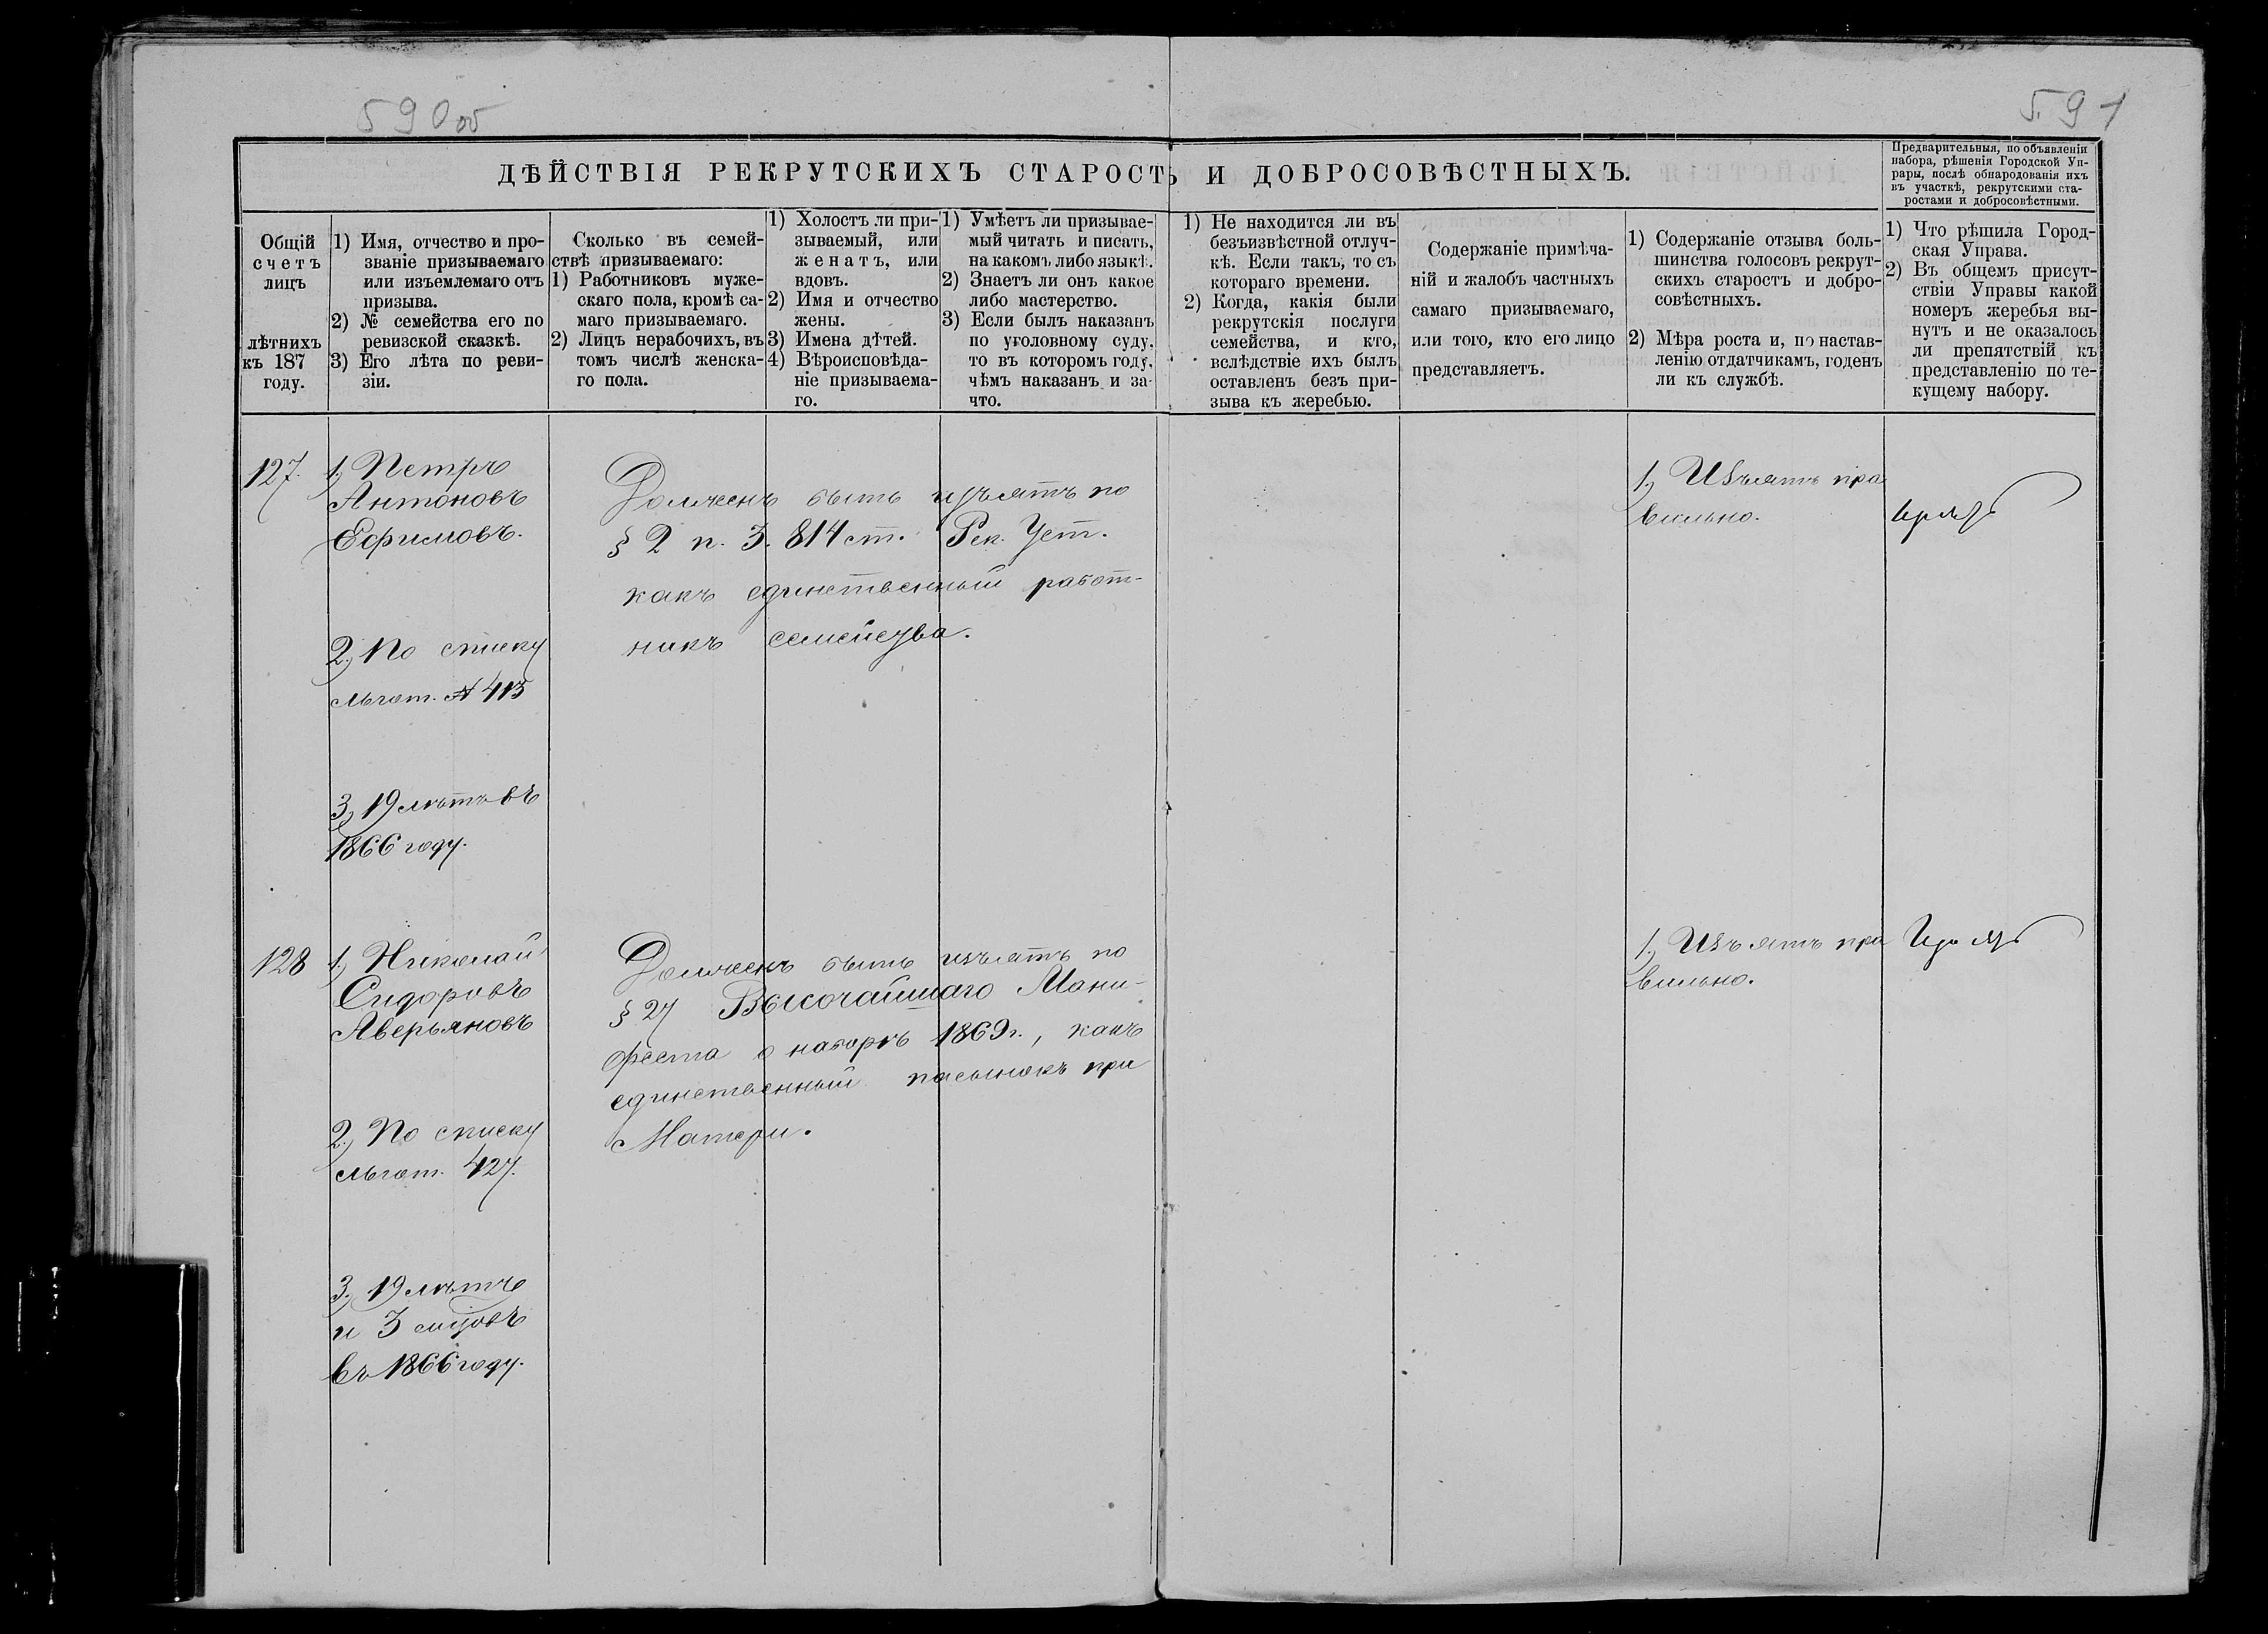 590об
591
ДѢЙСТВІЯ РЕКРУТСКИХЪ СТАРОСТЪ И ДОБРОСОВѢСТНЫХЪ.
Предварительныя, по объявленіи
набора, рѣшенія Городской Уп-
равы, послѣ обнародованія ихъ
въ участкѣ, рекрутскими ста-
ростами и добросовѣстными.
Общій
счетъ
лицъ
лѣтнихъ
къ 187
году.
1) Имя, отчество и про-
званіе призываемаго
или изъемлемаго отъ
призыва.
2) № семейства его по
ревизской сказкѣ.
3) Его лѣта по реви-
зіи.
Сколько въ семей-
ствѣ призываемаго:
1) Работниковъ муже-
скаго пола, кромѣ са-
маго призываемаго.
2) Лицъ нерабочихъ, въ
томъ числѣ женска-
го пола.
1) Холостъ ли при-
зываемый, или
женатъ, или
вдовъ.
2) Имя и отчество
жены.
3) Имена дѣтей.
4) Вѣроисповѣда-
ніе призываема-
го.
1) Умѣетъ ли призывае-
мый читать и писать,
на какомъ либо языкѣ.
2) Знаетъ ли онъ какое
либо мастерство.
3) Если былъ наказанъ
по уголовному суду,
то въ которомъ году,
чѣмъ наказанъ и за-
что.
1) Не находится ли въ
безъизвѣстной отлуч-
кѣ. Если такъ, то съ
котораго времени.
2) Когда, какія были
рекрутскія послуги
семейства, и кто,
вслѣдствіе ихъ былъ
оставленъ безъ при-
зыва къ жеребью.
Содержаніе примѣча-
ній и жалобъ частныхъ
самаго призываемаго,
или того, кто его лицо
представляетъ.
1) Содержаніе отзыва боль-
шинства голосовъ рекрут-
скихъ старостъ и добро-
совѣстныхъ.
2) Мѣра роста и, по настав-
ленію отдатчикамъ, годенъ
ли къ службѣ.
1) Что рѣшила Город-
ская Управа.
2) Въ общемъ присут-
ствіи Управы какой
номеръ жеребья вы-
нутъ и не оказалось
ли препятствій къ
представленію по те-
кущему набору.
127.
1) Петръ
Антоновъ
Ефимовъ.
2) По списку
льгот. № 413
3) 19 лѣтъ въ
1866 году.
Долженъ быть изъятъ по
§ 2 п. 3. 814 ст. Рек. Уст.
какъ единственный работ-
никъ семейства.
1) Изъятъ пра
вильно.
128
1) Николай
Сидоровъ
Аверьяновъ
2) По списку
льгот. 427.
3) 19 лѣтъ
и 3 мѣсяцовъ
въ 1866 году.
Долженъ быть изъятъ по
§ 27 Высочайшаго Мани-
феста о наборѣ 1869 г., какъ
единственный пасынокъ при
Матери.
1) Изъятъ пра
вильно.